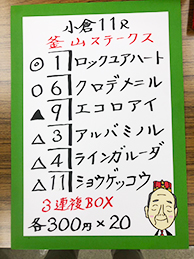 小倉11R
釜山ステークス
◎1ロックユアハート
○6クロデメニル
▲9エコロアイ
△3アルバミノル
△4ラインガルーダ
△11ショウゲッコウ
3連複BOX
各300円×20